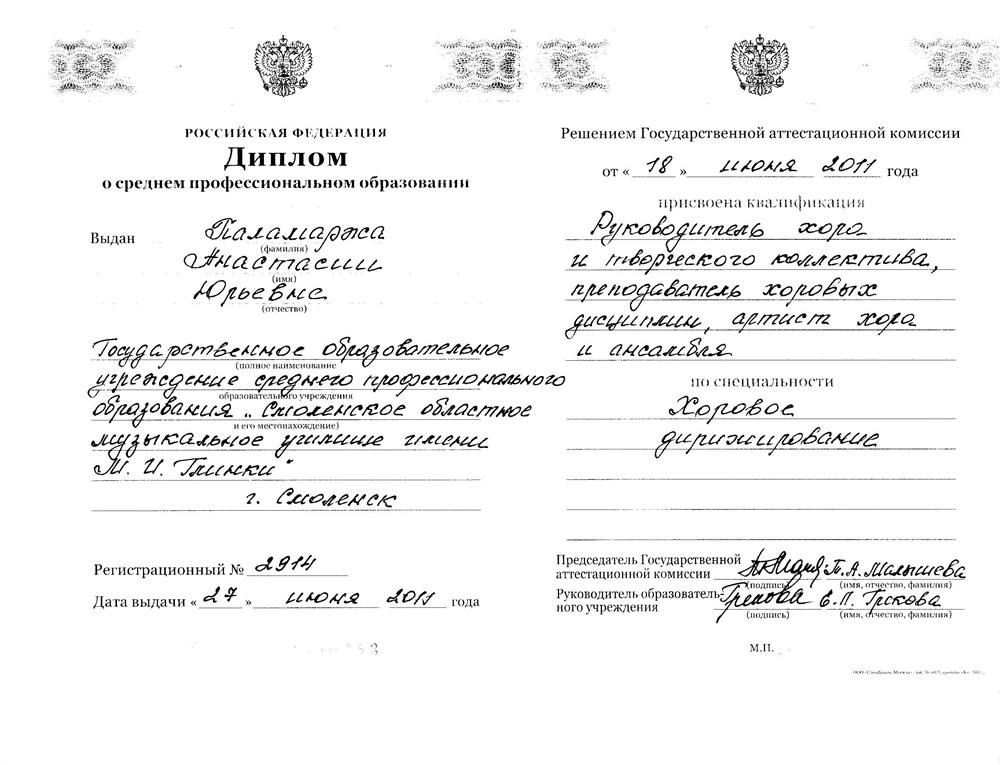 РОССИЙСКАЯ ФЕДЕРАЦИЯ
Диплом
о среднем профессиональном образовании
Выдан Паламаржа
(фамилия)
Анастасии
(имя)
Юрьевне
(отчество)
Государственное образовательное
(полное наименование
учреждение среднего профессионального
образовательного учреждения
образования „Смоленское областное
и его местонахождение)
музыкальное училище имени
М. И. Глинки"
г. Смоленск
Регистрационный № 2914
Дата выдачи « 27 » июня 2011 года
Решением Государственной аттестационной комиссии
от « 18 » июня 2011 года
присвоена квалификация
Руководитель хора
и творческого коллектива,
преподаватель хоровых
дисциплин, артист хора
и ансамбля
по специальности
Хоровое
дирижирование
Председатель Государственной
аттестационной комиссии Т.А. Малышева
(подпись) (имя, отчество, фамилия)
Руководитель образователь-
ного учреждения Грекова Е.П. Грекова
(подпись) (имя, отчество, фамилия)
М.П.